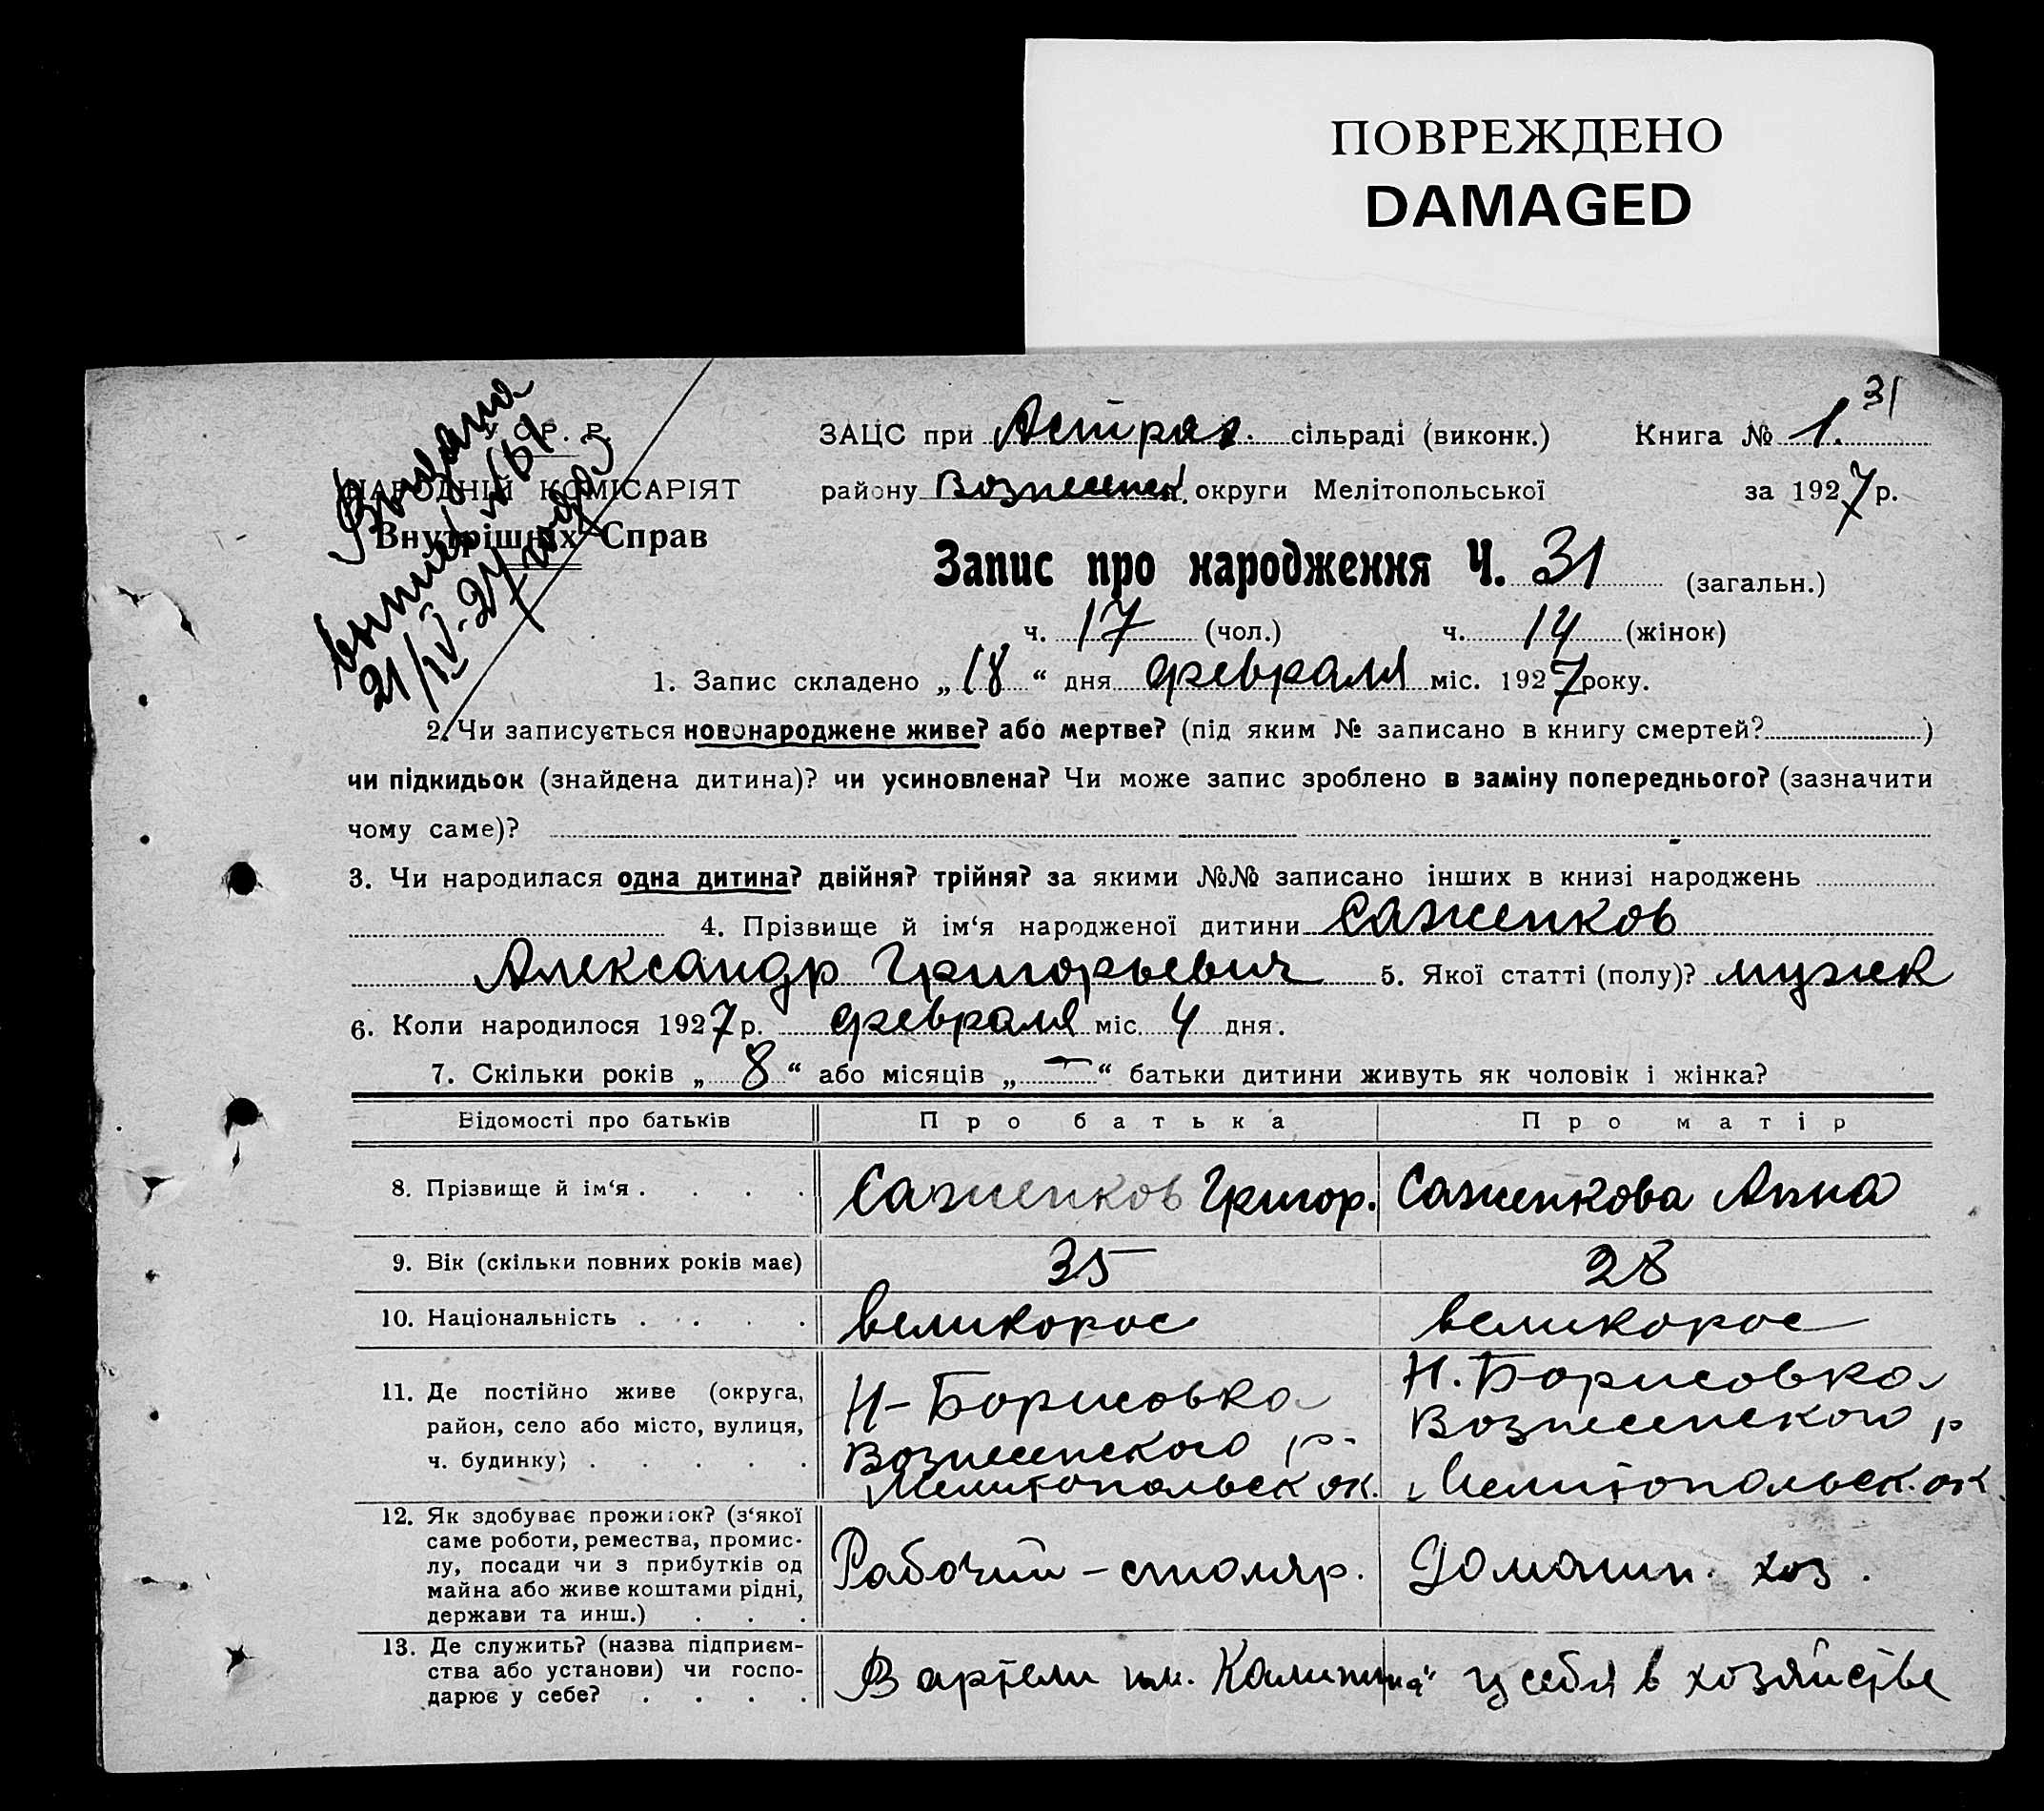 ПОВРЕЖДЕНО
DAMAGED
31
У. С. Р. Р.
НАРОДНІЙ КОМІСАРІЯТ
Внутрішніх Справ
Видана
21/IV-27 года
ЗАЦС при Астрах. сільраді (виконк.) Книга № 1.
району Вознесенск. округи Мелітопольської за 1927 р.
Запис про народження Ч. 31 (загальн.)
ч. 17 (чол.) ч. 14 (жінок)
1. Запис складено „18“ дня февраля міс. 1927 року.
2. Чи записується новонароджене живе? або мертве? (під яким № записано в книгу смертей? )
чи підкидьок (знайдена дитина)? чи усиновлена? Чи може запис зроблено в заміну попереднього? (зазначити
чому саме)?
3. Чи народилася одна дитина? двійня? трійня? за якими №№ записано інших в книзі народжень
4. Прізвище й ім‘я народженої дитини Саженков
Александр Григорьевич 5. Якої статті (полу)? мужск
6. Коли народилося 1927 р. февраля міс. 4 дня.
7. Скільки років „8“ або місяців „—“ батьки дитини живуть як чоловік і жінка?
Відомості про батьків Про батька Про матір
8. Прізвище й ім‘я . . . . Саженков Григор. Саженкова Анна
9. Вік (скільки повних років має) 35 28
10. Національність . . . . великорос великорос
11. Де постійно живе (округа, Н-Борисовка Н. Борисовка
район, село або місто, вулиця, Вознесенского р- Вознесенского р
ч. будинку) . . . . . Мелитопольск ок. Мелитопольск. ок.
12. Як здобуває прожиток? (з‘якої
саме роботи, ремества, промис-
лу, посади чи з прибутків од Рабочий – столяр. Домашн. хоз.
майна або живе коштами рідні,
держави та инш.) . . .
13. Де служить? (назва підприєм-
ства або установи) чи госпо- В артели им. Калинина" у себя в хозяйстве
дарює у себе? . . . .